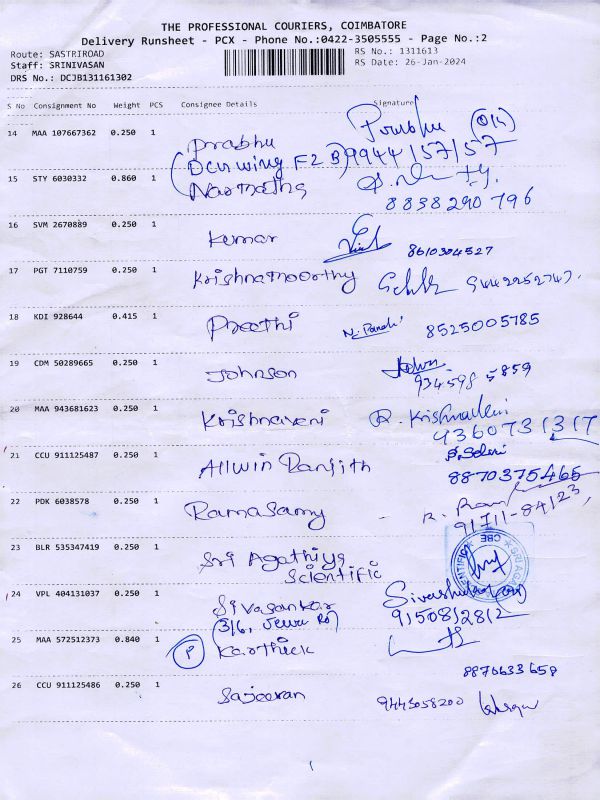 THE PROFESSIONAL COURIERS, COIMBATORE
Delivery Runsheet - PCX - Phone No.:0422-3505555 - Page No.:2
Route: SASTRIROAD
Staff: SRINIVASAN
DRS No.: DCJB131161302
RS No.: 1311613
RS Date: 26-Jan-2024
S No Consignment No Weight PCS Consignee Details Signature
14 MAA 107667362 0.250 1 Prabhu Prabhu
F2 B) 9944157157
15 STY 6030332 0.860 1 Narmatha
8838290796
16 SVM 2670889 0.250 1 Kumar 8610304527
17 PGT 7110759 0.250 1 Krishnamoorthy
18 KDI 928644 0.415 1 Preethi 8525005785
19 CDM 50289665 0.250 1 Johnson
934598 5859
20 MAA 943681623 0.250 1 Krishnaveni R. Krishnaveni
9360731317
21 CCU 911125487 0.250 1 Allwin Ranjith
8870375465
22 PDK 6038578 0.250 1 Ramasamy
23 BLR 535347419 0.250 1 Sri Agathiya
Scientific
24 VPL 404131037 0.250 1 Sivasankar
9150812812
25 MAA 572512373 0.840 1 P Karthick
8870633658
26 CCU 911125486 0.250 1 Sajeevan 9443058200